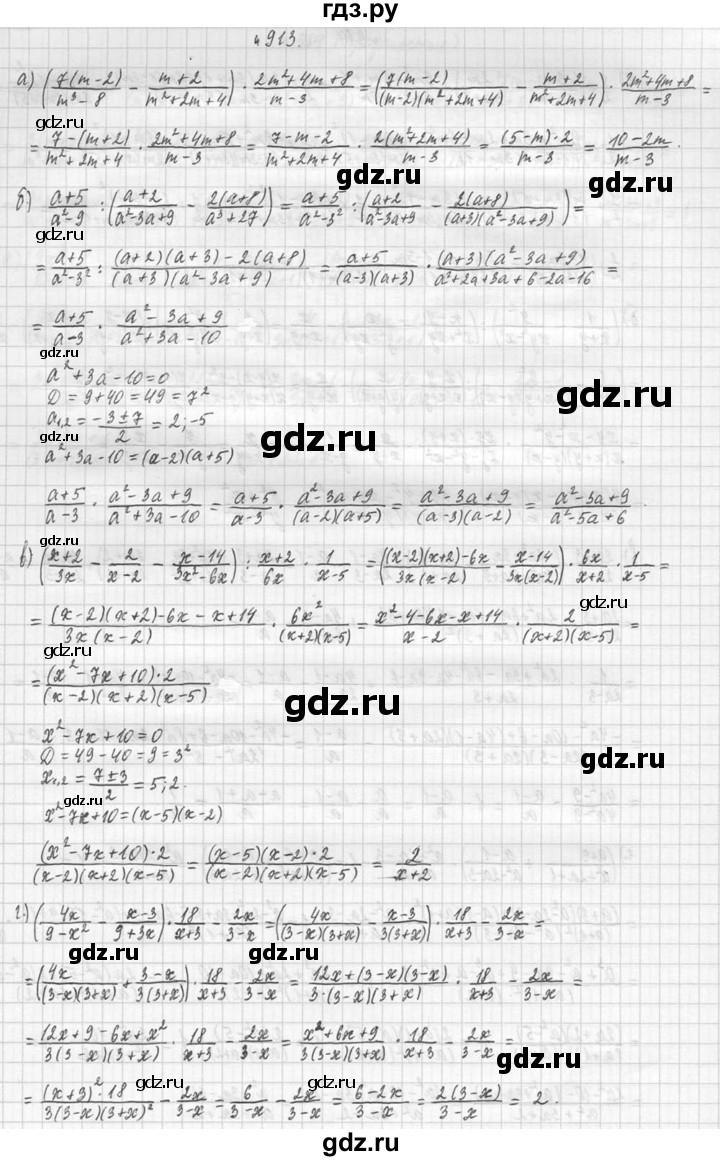 гдз.ру
№913.
а) (7(m-2)/(m³-8) - (m+2)/(m²+2m+4)) · (2m²+4m+8)/(m-3) = (7(m-2)/((m-2)(m²+2m+4)) - (m+2)/(m²+2m+4)) · (2m²+4m+8)/(m-3) =
= (7-(m+2))/(m²+2m+4) · (2m²+4m+8)/(m-3) = (7-m-2)/(m²+2m+4) · 2(m²+2m+4)/(m-3) = (5-m)·2/(m-3) = (10-2m)/(m-3).
б) (a+5)/(a²-9) : ((a+2)/(a²-3a+9) - 2(a+8)/(a³+27)) = (a+5)/(a²-3²) : ((a+2)/(a²-3a+9) - 2(a+8)/((a+3)(a²-3a+9))) =
= (a+5)/(a²-3²) : ((a+2)(a+3)-2(a+8))/((a+3)(a²-3a+9)) = (a+5)/((a-3)(a+3)) · (a+3)(a²-3a+9)/(a²+2a+3a+6-2a-16) =
= (a+5)/(a-3) · (a²-3a+9)/(a²+3a-10)
a²+3a-10=0
D=9+40=49=7²
a₁,₂ = (-3±7)/2 = 2; -5
a²+3a-10=(a-2)(a+5)
(a+5)/(a-3) · (a²-3a+9)/(a²+3a-10) = (a+5)/(a-3) · (a²-3a+9)/((a-2)(a+5)) = (a²-3a+9)/((a-3)(a-2)) = (a²-3a+9)/(a²-5a+6).
в) ((x+2)/3x - 2/(x-2) - (x-14)/(3x²-6x)) : (x+2)/6x · 1/(x-5) = (((x-2)(x+2)-6x)/(3x(x-2)) - (x-14)/(3x(x-2))) · 6x/(x+2) · 1/(x-5) =
= ((x-2)(x+2)-6x-x+14)/(3x(x-2)) · 6x²/((x+2)(x-5)) = (x²-4-6x-x+14)/(x-2) · 2/((x+2)(x-5)) =
= (x²-7x+10)·2/((x-2)(x+2)(x-5))
x²-7x+10=0
D=49-40=9=3²
x₁,₂ = (7±3)/2 = 5; 2.
x²-7x+10=(x-5)(x-2)
(x²-7x+10)·2/((x-2)(x+2)(x-5)) = (x-5)(x-2)·2/((x-2)(x+2)(x-5)) = 2/(x+2)
г.) (4x/(9-x²) - (x-3)/(9+3x)) · 18/(x+3) - 2x/(3-x) = (4x/((3-x)(3+x)) - (x-3)/(3(3+x))) · 18/(x+3) - 2x/(3-x) =
= (4x/((3-x)(3+x)) + (3-x)/(3(3+x))) · 18/(x+3) - 2x/(3-x) = (12x+(3-x)(3-x))/(3·(3-x)(3+x)) · 18/(x+3) - 2x/(3-x) =
= (12x+9-6x+x²)/(3(3-x)(3+x)) · 18/(x+3) - 2x/(3-x) = (x²+6x+9)/(3(3-x)(3+x)) · 18/(x+3) - 2x/(3-x) =
= (x+3)²·18/(3(3-x)(3+x)²) - 2x/(3-x) = 6/(3-x) - 2x/(3-x) = (6-2x)/(3-x) = 2(3-x)/(3-x) = 2.
gdz.ru